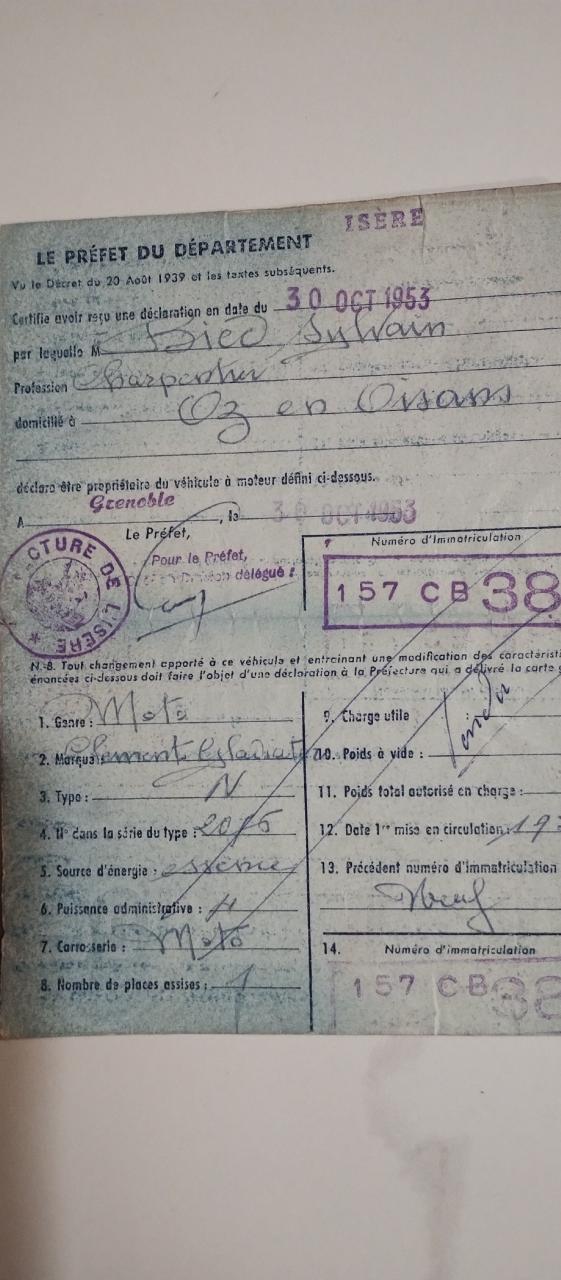 ISÈRE
LE PRÉFET DU DÉPARTEMENT
Vu le Décret du 20 Août 1939 et les textes subséquents.
Certifie avoir reçu une déclaration en date du 30 OCT 1953
par laquelle M. Sylvain
Profession Charpentier
domicilié à Oz en Oisans
déclare être propriétaire du véhicule à moteur défini ci-dessous.
A Grenoble, le 30 OCT 1953
Le Préfet,
Pour le Préfet,
délégué :
CTURE DE L'ISÈRE
Numéro d'Immatriculation
157 CB 38
N.-B. Tout changement apporté à ce véhicule et entraînant une modification des caractéristi
énoncées ci-dessous doit faire l'objet d'une déclaration à la Préfecture qui a délivré la carte g
1. Genre : Moto
2. Marque : Clement Gladiator
3. Type : N
4. N° dans la série du type : 20
5. Source d'énergie : essence
6. Puissance administrative :
7. Carrosserie : Moto
8. Nombre de places assises : 1
9. Charge utile
10. Poids à vide :
11. Poids total autorisé en charge :
12. Date 1re mise en circulation : 19
13. Précédent numéro d'immatriculation
Neuf
14. Numéro d'immatriculation
157 CB 38